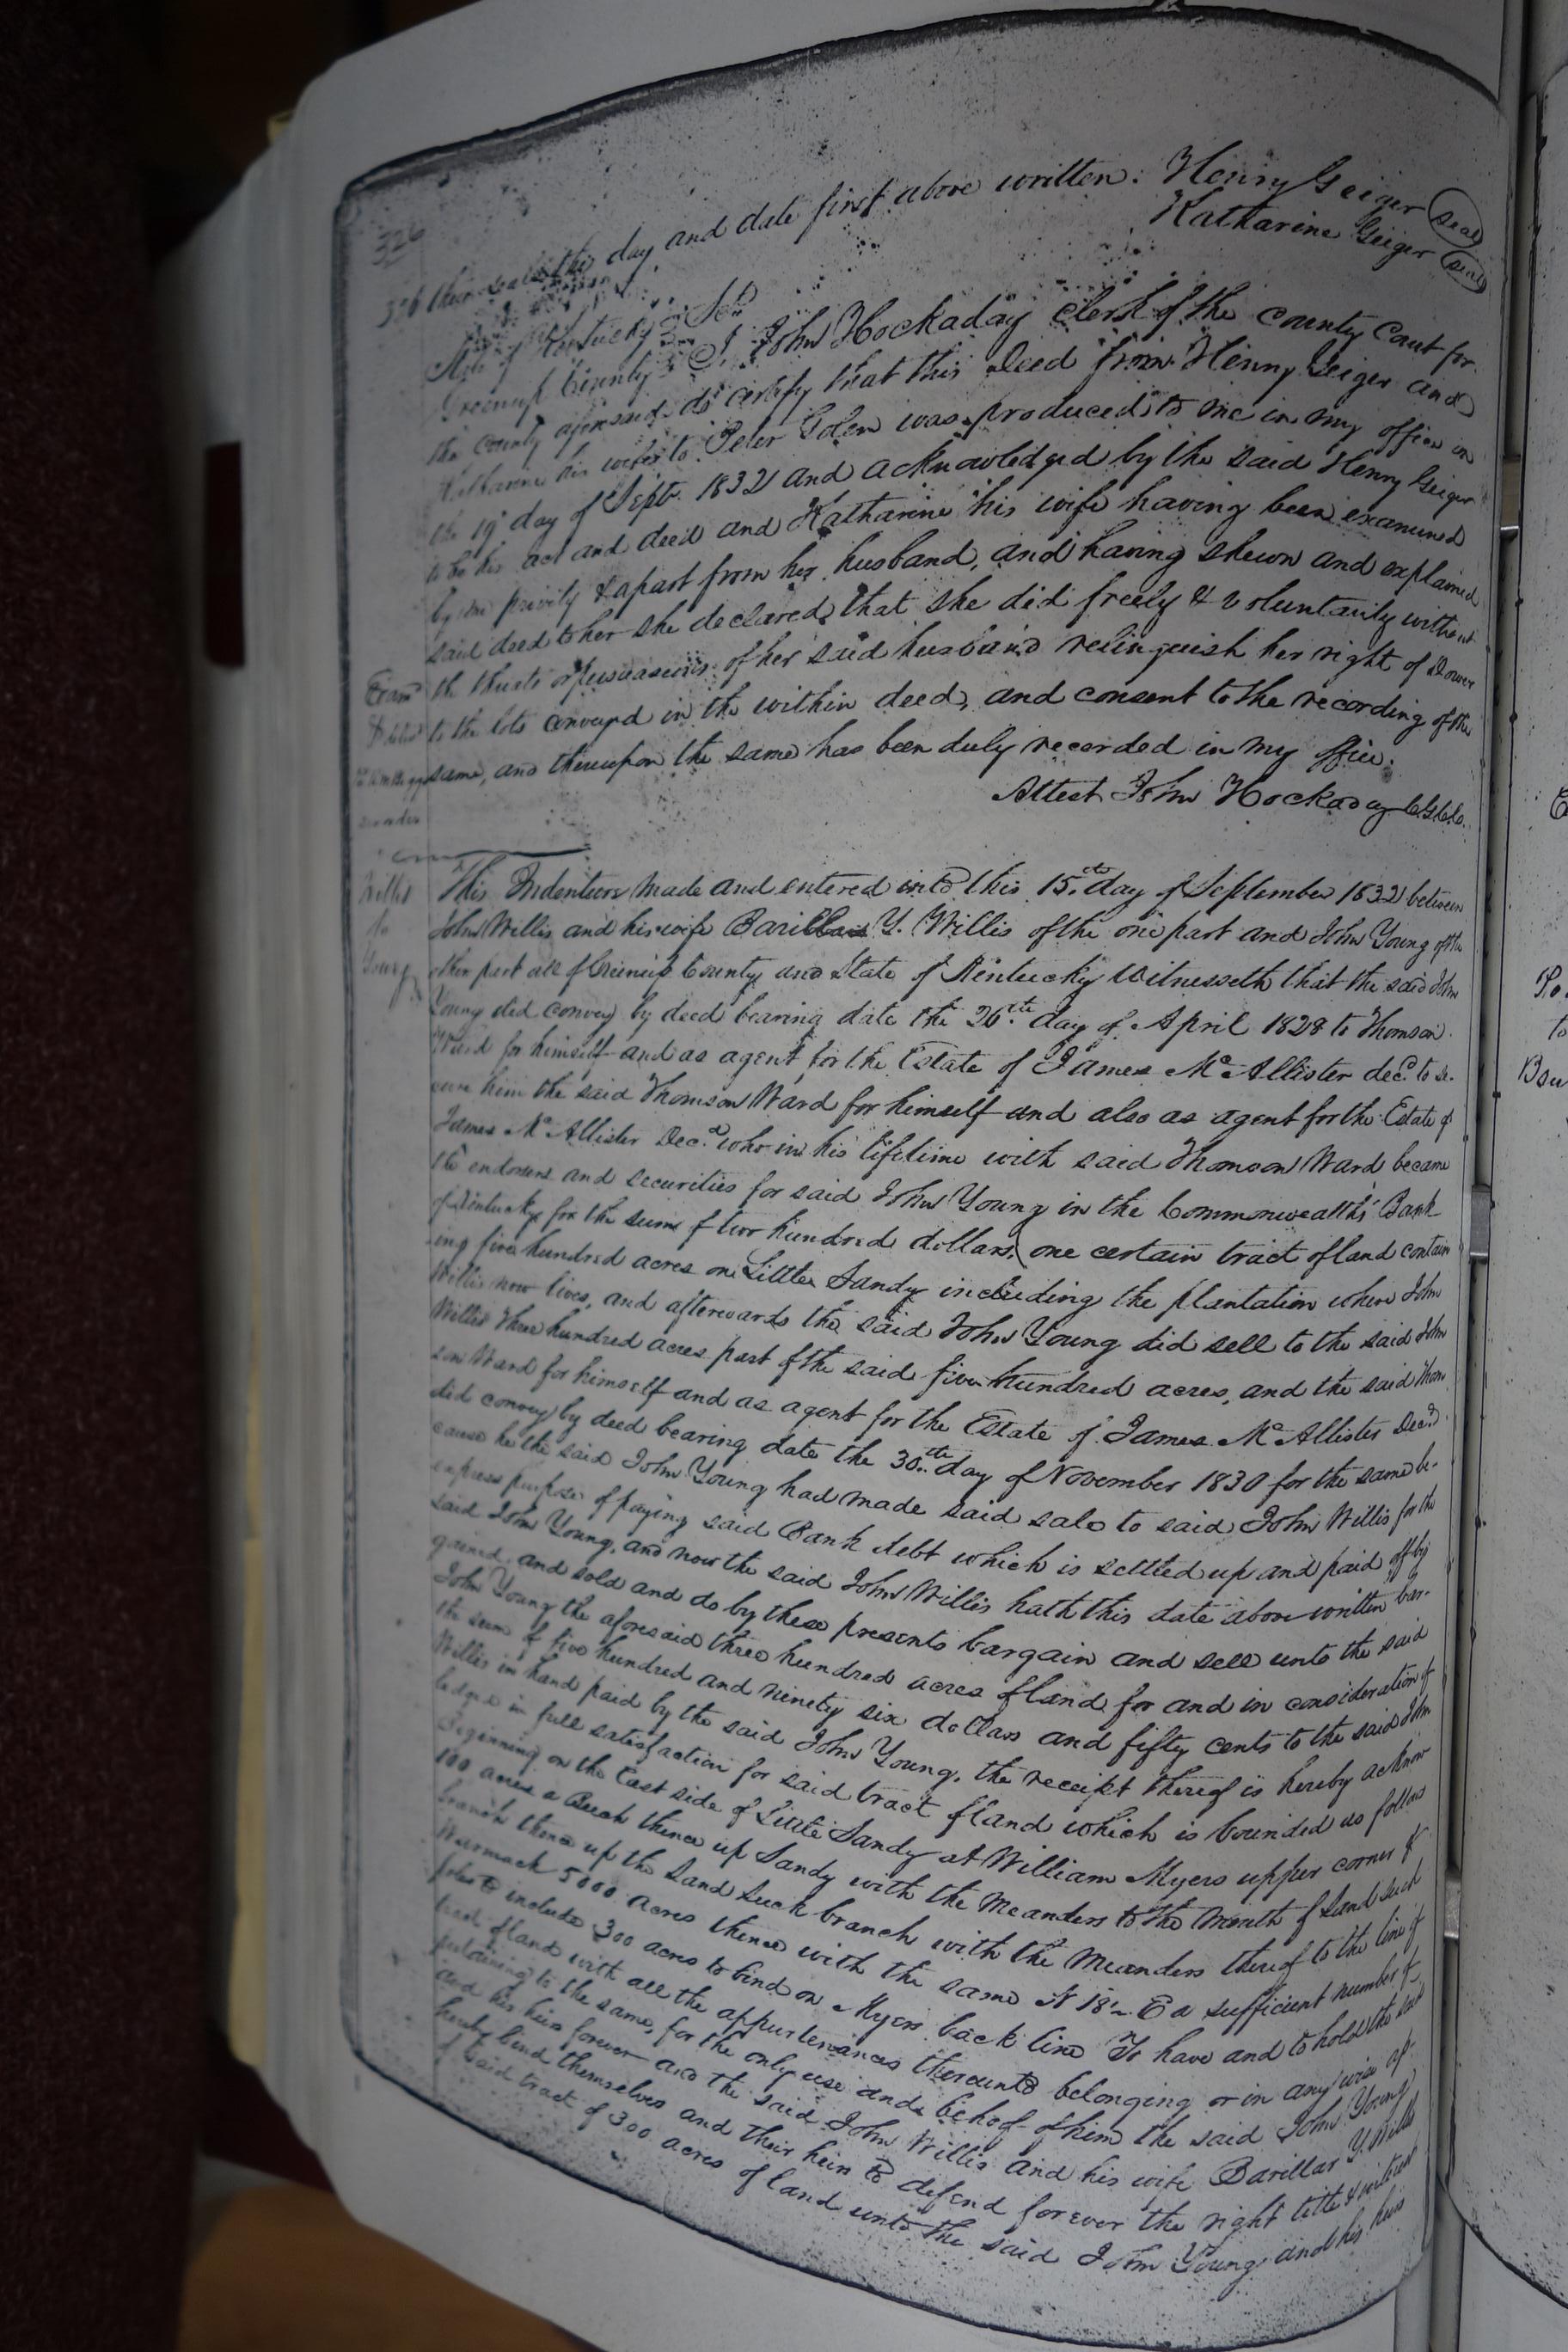 326
326 their seals the day and date first above written. Henry Geiger (seal)
Katharine Geiger (seal)
State of Kentucky Sct
Greenup County I John Hockaday Clerk of the county Court for
the County aforesaid do certify that this Deed from Henry Geiger and
Katharine his wife to Peter Golen was produced to me in my office on
the 19th day of Septr. 1832 and acknowledged by the said Henry Geiger
to be his act and deed and Katharine his wife having been examined
by me privily & apart from her husband, and having shewn and explained
said deed to her she declared that she did freely & voluntarily without
Exam the thrests or persuasions of her said husband relinquish her right of Dower
to the lots conveyed in the within deed, and consent to the recording of the
same, and thereupon the same has been duly recorded in my office.
Attest John Hockaday C.G.C.C.
Willis
to
Young
This Indenture made and entered into this 15th day of September 1832 between
John Willis and his wife Barillar Y. Willis of the one part and John Young of the
other part all of Greenup County and State of Kentucky Witnesseth that the said John
Young did convey by deed bearing date the 26th day of April 1828 to Thomson
Ward for himself and as agent for the Estate of James McAllister decd. to se-
cure him the said Thomson Ward for himself and also as agent for the Estate of
James McAllister Decd. who in his lifetime with said Thomson Ward became
the endorsers and securities for said John Young in the Commonwealths Bank
of Kentucky for the sum of two hundred dollars, one certain tract of land contain
ing five hundred acres on Little Sandy including the plantation where John
Willis now lives, and afterwards the said John Young did sell to the said John
Willis three hundred acres part of the said five hundred acres, and the said Thom
son Ward for himself and as agent for the Estate of James McAllister Decd.
did convey by deed bearing date the 30th day of November 1830 for the same be-
cause he the said John Young had made said sale to said John Willis for the
express purpose of paying said Bank debt which is settled up and paid off by
said John Young, and now the said John Willis hath this date above written bar-
gained and sold and do by these presents bargain and sell unto the said
John Young the aforesaid three hundred acres of land for and in consideration of
the sum of five hundred and ninety six dollars and fifty cents to the said John
Willis in hand paid by the said John Young, the receipt thereof is hereby acknow
ledged in full satisfaction for said tract of land which is bounded as follows
Beginning on the East side of Little Sandy at William Myers upper corner of
100 acres a Beech thence up Sandy with the Meanders to the mouth of Sand Suck
branch thence up the Sand Suck branch with the Meanders thereof to the line of
Warmack 5000 acres thence with the same N 18 E a sufficient number of
poles to include 300 acres to bind on Myers back line To have and to hold the said
tract of land with all the appurtenances thereunto belonging or in any wise ap-
pertaining to the same, for the only use and behoof of him the said John Young
and his heirs forever and the said John Willis and his wife Barillar Y. Willis
hereby bind themselves and their heirs to defend forever the right title & interest
of said tract of 300 acres of land unto the said John Young and his heirs